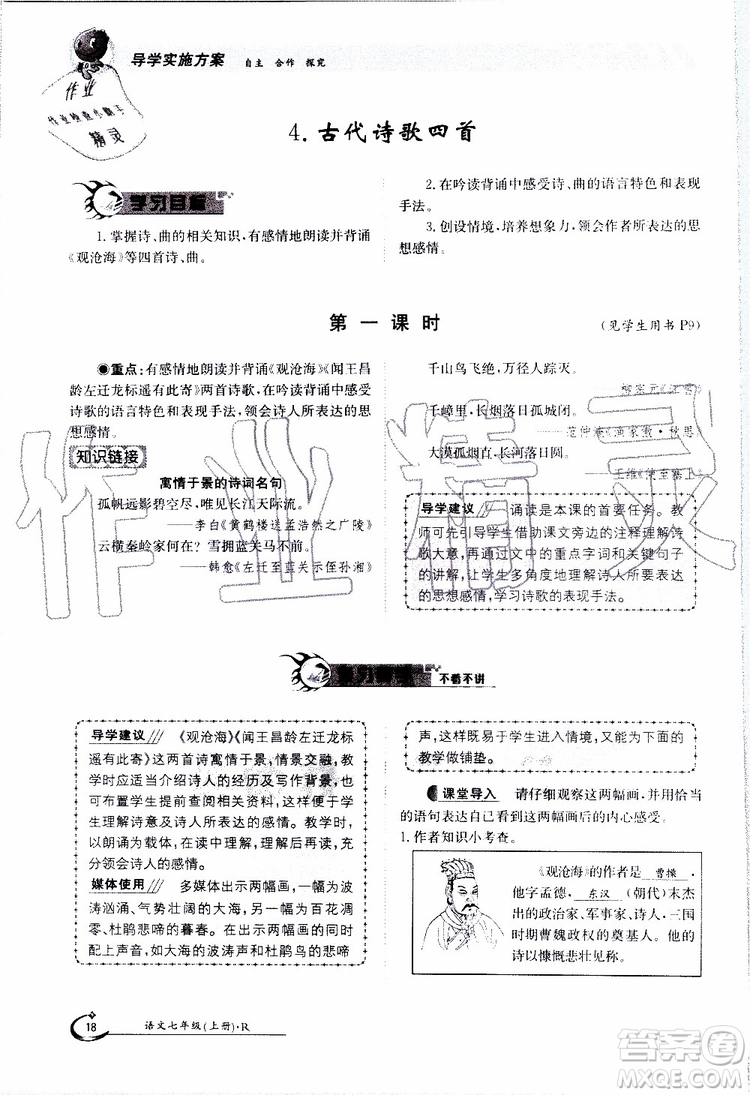 导学实施方案 自主 合作 探究
作业
作业检查小助手
精灵
4. 古代诗歌四首
学习目标
1. 掌握诗、曲的相关知识，有感情地朗读并背诵
《观沧海》等四首诗、曲。
2. 在吟读背诵中感受诗、曲的语言特色和表现
手法。
3. 创设情境，培养想象力，领会作者所表达的思
想感情。
第一课时
(见学生用书 P9)
●重点：有感情地朗读并背诵《观沧海》《闻王昌
龄左迁龙标遥有此寄》两首诗歌，在吟读背诵中感受
诗歌的语言特色和表现手法，领会诗人所表达的思
想感情。
知识链接
寓情于景的诗词名句
孤帆远影碧空尽，唯见长江天际流。
——李白《黄鹤楼送孟浩然之广陵》
云横秦岭家何在？雪拥蓝关马不前。
——韩愈《左迁至蓝关示侄孙湘》
千山鸟飞绝，万径人踪灭。
——柳宗元《江雪》
千嶂里，长烟落日孤城闭。
——范仲淹《渔家傲·秋思》
大漠孤烟直，长河落日圆。
——王维《使至塞上》
导学建议 诵读是本课的首要任务。教
师可先引导学生借助课文旁边的注释理解诗
歌大意，再通过文中的重点字词和关键句子
的讲解，让学生多角度地理解诗人所要表达
的思想感情，学习诗歌的表现手法。
不看不讲
导学建议 《观沧海》《闻王昌龄左迁龙标
遥有此寄》这两首诗寓情于景，情景交融，教
学时应适当介绍诗人的经历及写作背景，也
可布置学生提前查阅相关资料，这样有利于
学生理解诗意及诗人的感情。教学时，可以
以朗读为主，在读中理解，在读中背诵，在读
中体会诗人的感情。
媒体使用 多媒体出示两幅画，一幅为波
涛汹涌、气势壮阔的大海，一幅为杨花凋
零、杜鹃悲啼的暮春。在出示这两幅画时，
配上声音，如大海的波涛声和杜鹃的悲啼
声，这样既易于学生进入情境，又能为下面的
教学做铺垫。
课堂导入 请仔细观察这两幅画，并用恰当
的语句表达自己看到这两幅画后的内心感受。
1. 作者知识小考查。
《观沧海》的作者是 曹操，
他字孟德， 东汉 (朝代)末杰
出的政治家、军事家、诗人，三国
时期曹魏政权的奠基人。他的
诗以慷慨悲壮见称。
18 语文七年级(上册)·R
作业精灵
答案圈
MXQE.COM